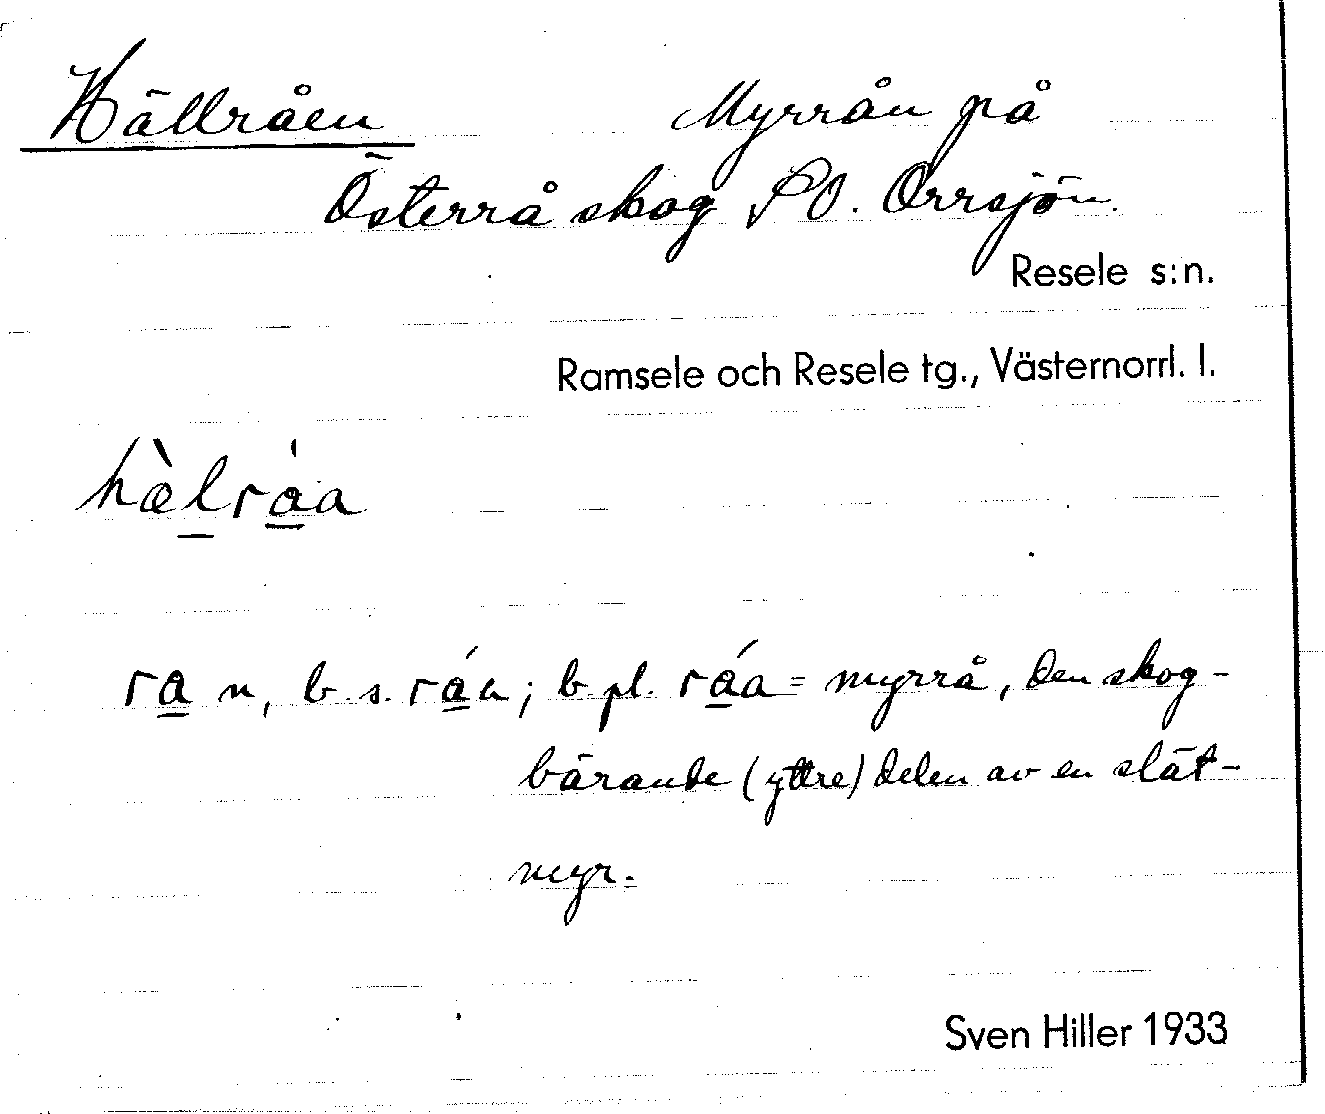 Hällråen Myrrån på
Österrå skog SO. Orrsjön.
Resele s:n.
Ramsele och Resele tg., Västernorrl. l.
hæ̀lrάa
ra n, b. s. ráa; b. pl. ráa = myrrå, den skog-
bärande (yttre) delen av en slät-
myr.
Sven Hiller 1933